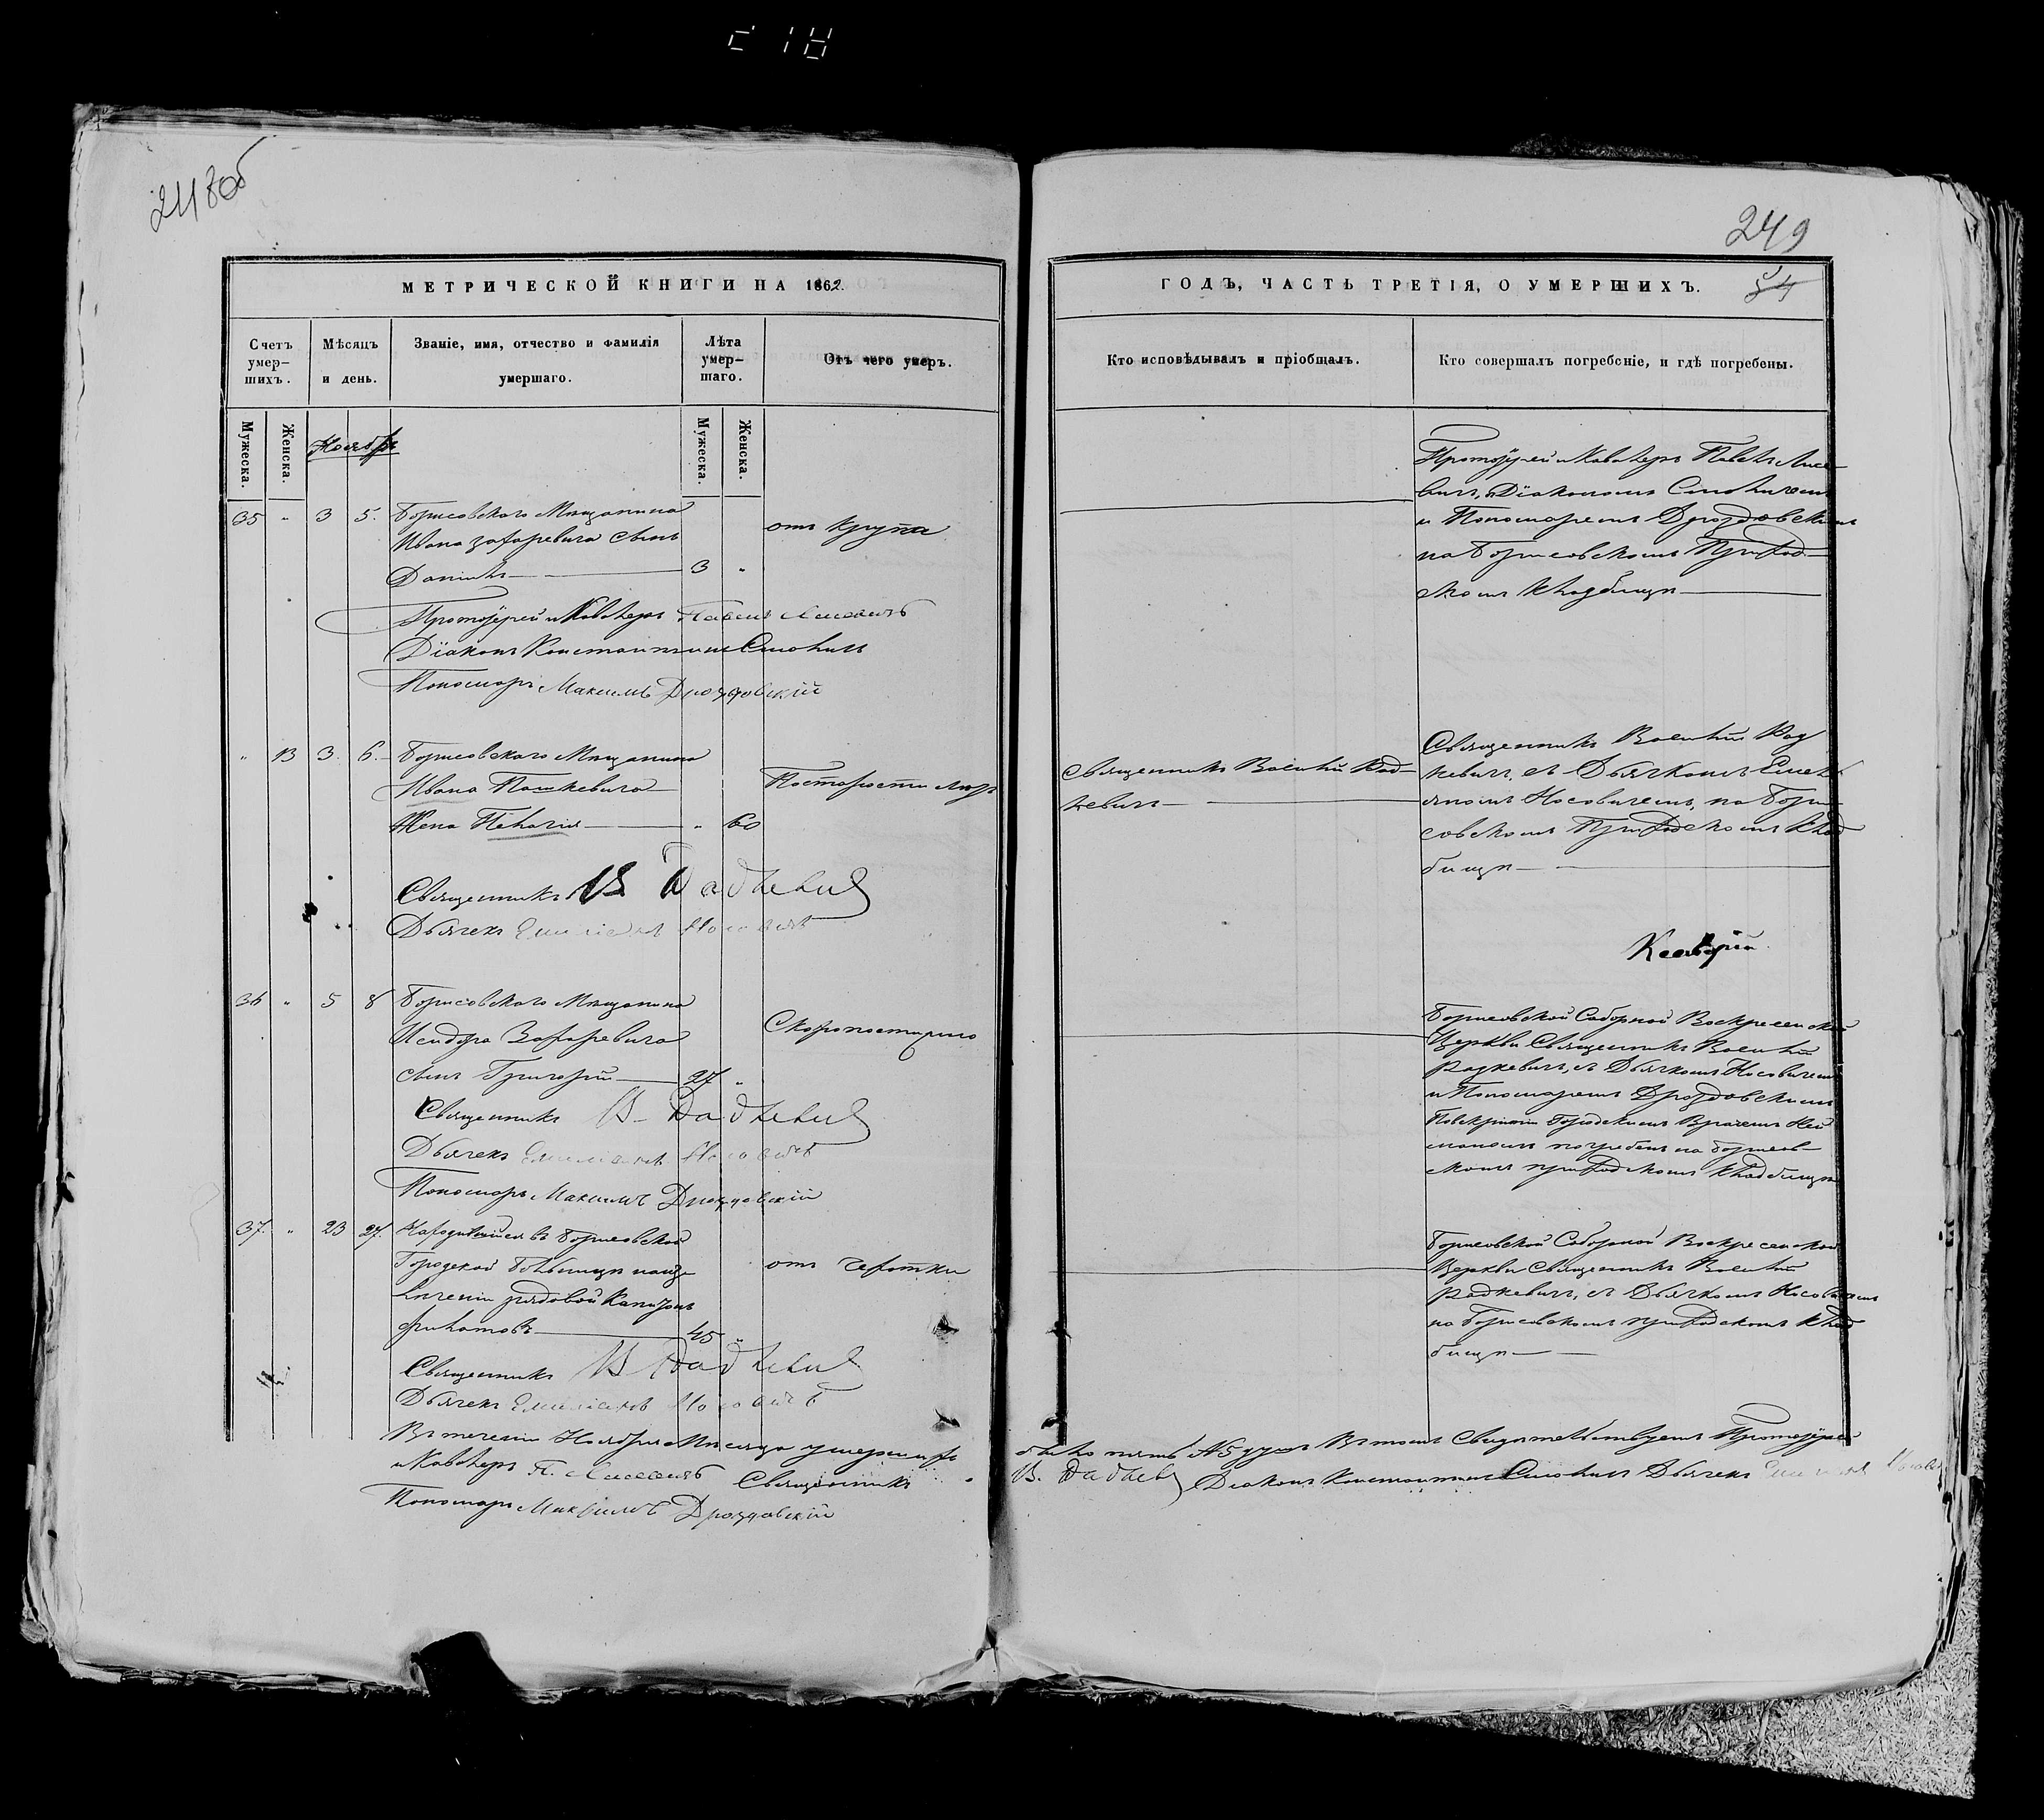 248 об
249
54
МЕТРИЧЕСКОЙ КНИГИ НА 1862.
ГОДЪ, ЧАСТЬ ТРЕТІЯ, О УМЕРШИХЪ.
Счетъ умер-шихъ.
Мѣсяцъ и день.
Званіе, имя, отчество и фамилія умершаго.
Лѣта умер-шаго.
Отъ чего умеръ.
Кто исповѣдывалъ и пріобщалъ.
Кто совершалъ погребеніе, и гдѣ погребены.
Мужеска.
Женска.
Мужеска.
Женска.
Ноябрь
35 " 3 5. Борисовскаго Мѣщанина
Ивана Захаревича сынъ
Даніилъ 3 "
отъ крупа
Протоіерей и Кавалеръ Павелъ Лисе-
вичъ, Діакономъ Смоличемъ
и Пономаремъ Дроздовскимъ
на Борисовскомъ Приход-
скомъ кладбищѣ
Протоіерей и Кавалеръ Павелъ
Діаконъ Константинъ Смоличъ
Пономарь Максимъ Дроздовскій
" 13 3. 6. Борисовскаго Мѣщанина
Ивана Пашкевича
Жена Пелагія " 60
По старости лѣтъ
Священникъ Василій Рад-
кевичъ
Священникъ Василій Рад
кевичъ, съ Дьячкомъ Емель
яномъ Носовичемъ, на Бори-
совскомъ Приходскомъ клад
бищѣ
Священникъ В Радкевич
Дьячекъ Емиліанъ Носовичъ
36 " 5 8 Борисовскаго Мѣщанина
Исидора Захаревича
сынъ Григорій 27 "
Скоропостижно
Борисовской Соборной Воскресенской
Церкви Священникъ Василій
Радкевичъ, съ Дьячкомъ Носовичемъ
и Пономаремъ Дроздовскимъ
По вскрытіи Городскимъ Врачемъ
погребенъ на Борисов-
скомъ приходскомъ кладбищѣ
Священникъ В. Радкевич
Дьячекъ Емиліанъ Носовичъ
Пономарь Максимъ Дроздовскій
37. " 23 27. Находившійся въ Борисовской
Городской Больницѣ на из-
леченіи рядовой
Филатовъ 45 "
отъ чахотки
Борисовской Соборной Воскресенской
Церкви Священникъ Василій
Радкевичъ, съ Дьячкомъ Носовичемъ
на Борисовскомъ приходскомъ клад
бищѣ
Священникъ В Радкевич
Дьячекъ Емиліанъ Носовичъ
Въ теченіи Ноября Мѣсяца умершихъ было пять № 5 душъ Въ томъ Свидѣтельствуемъ Протоіерей
и Кавалеръ П. Священникъ В. Радкевич Діаконъ Константинъ Смоличъ Дьячекъ Емиліанъ Носович
Пономарь Максимъ Дроздовскій